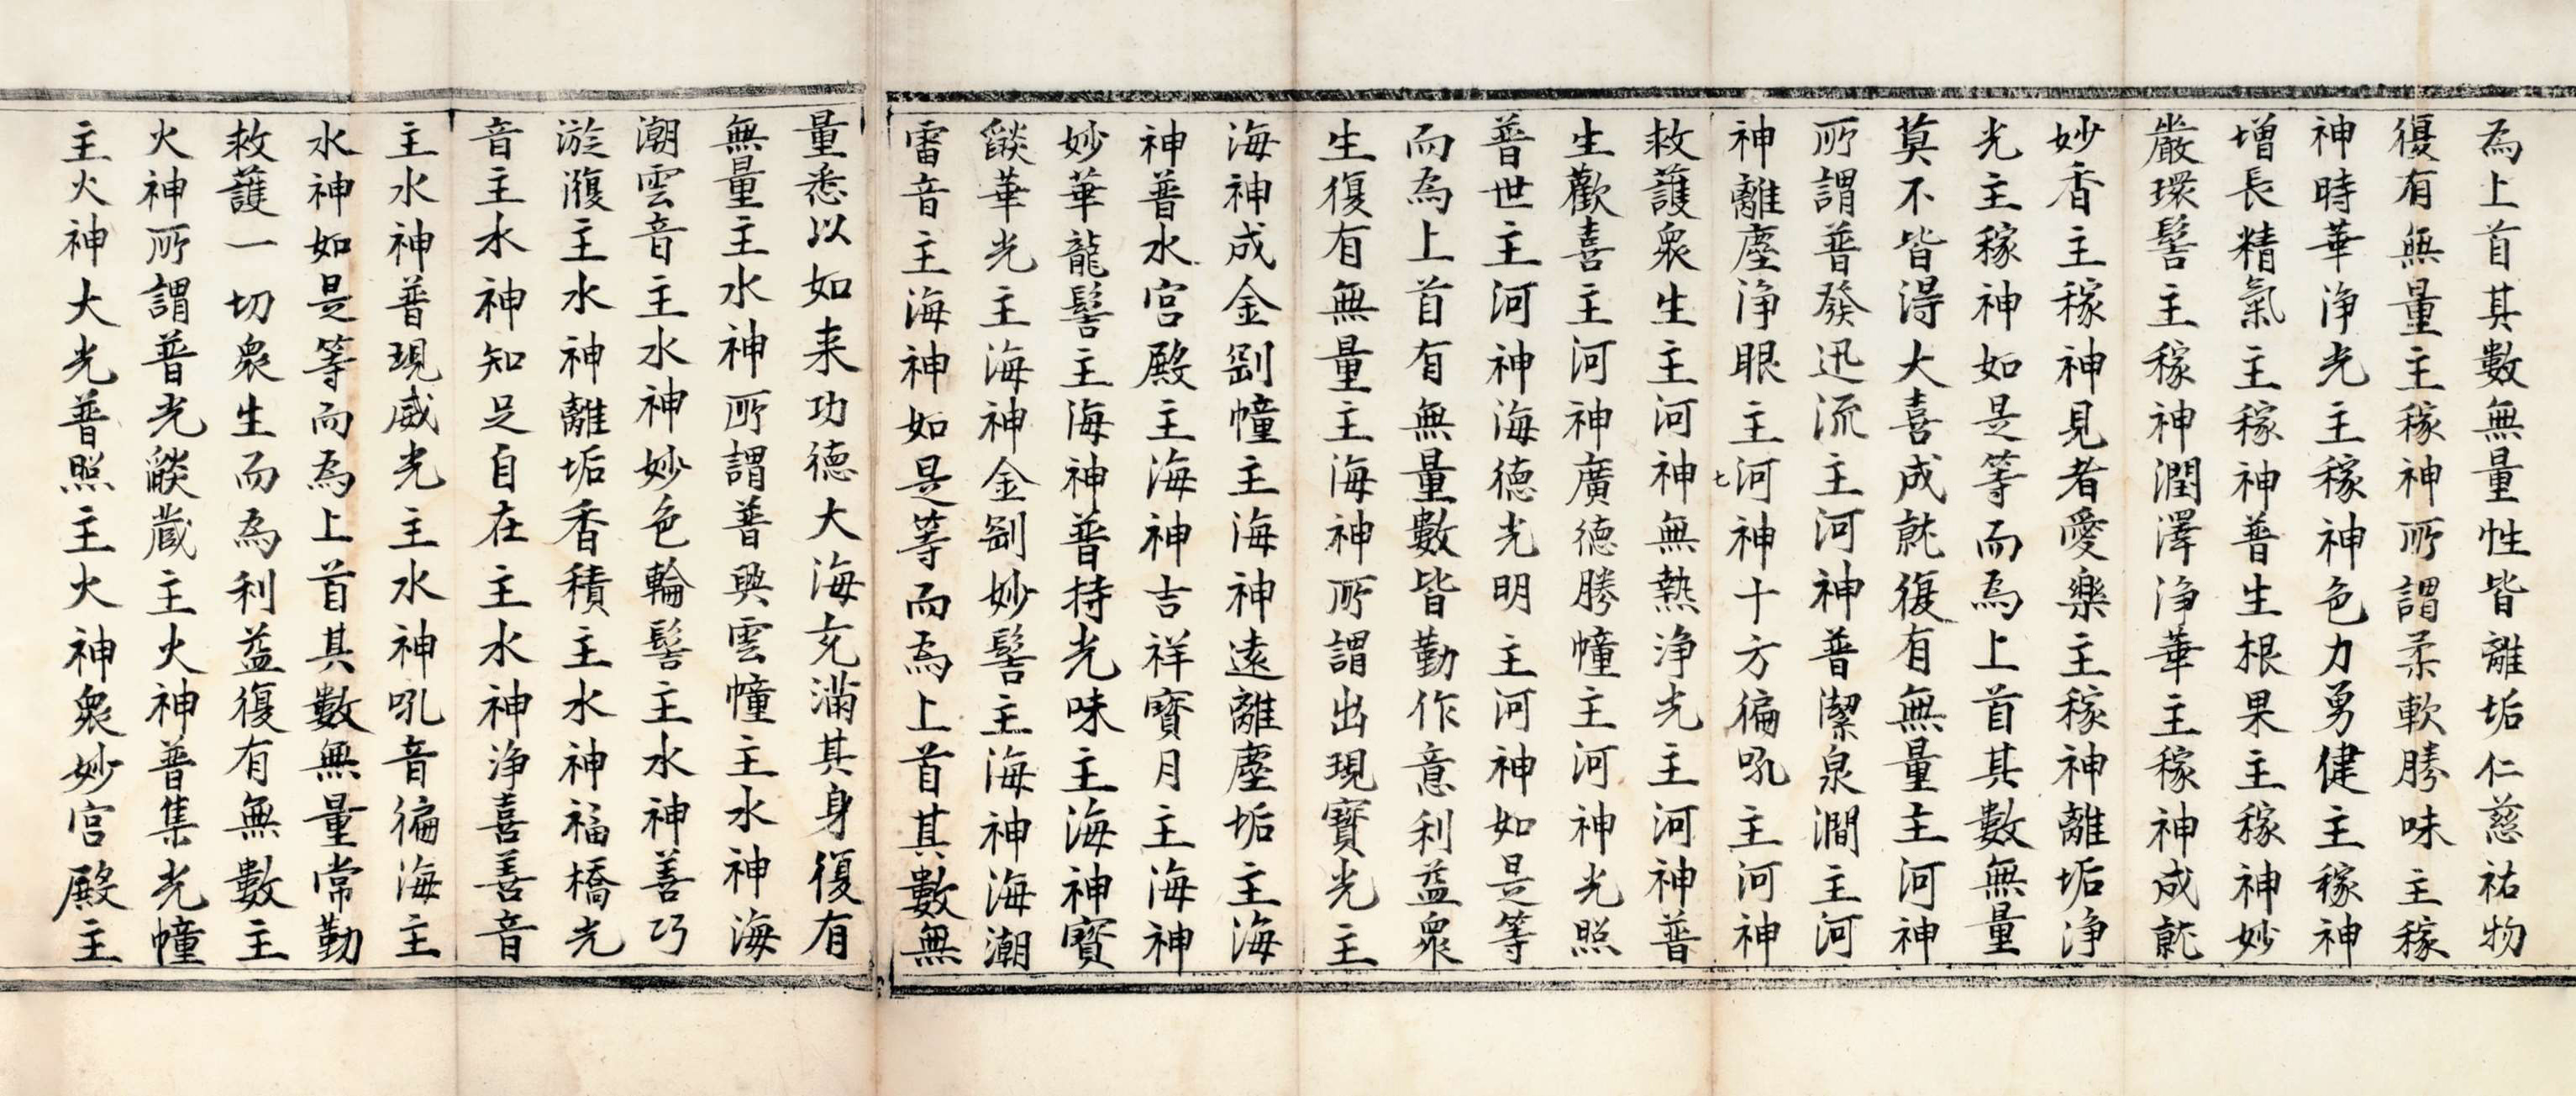 為上首其數無量性皆離垢仁慈祐物
復有無量主稼神所謂柔軟勝味主稼
神時華淨光主稼神色力勇健主稼神
增長精氣主稼神普生根果主稼神妙
嚴環髻主稼神潤澤淨華主稼神成就
妙香主稼神見者愛樂主稼神離垢淨
光主稼神如是等而為上首其數無量
莫不皆得大喜成就復有無量主河神
所謂普發迅流主河神普潔泉澗主河
神離塵淨眼主河神十方徧吼主河神
七
救護衆生主河神無熱淨光主河神普
生歡喜主河神廣德勝幢主河神光照
普世主河神海德光明主河神如是等
而為上首有無量數皆勤作意利益衆
生復有無量主海神所謂出現寶光主
海神成金剛幢主海神遠離塵垢主海
神普水宮殿主海神吉祥寶月主海神
妙華龍髻主海神普持光味主海神寶
燄華光主海神金剛妙髻主海神海潮
雷音主海神如是等而為上首其數無
量悉以如来功德大海充滿其身復有
無量主水神所謂普興雲幢主水神海
潮雲音主水神妙色輪髻主水神善巧
漩澓主水神離垢香積主水神福橋光
音主水神知足自在主水神淨喜善音
主水神普現威光主水神吼音徧海主
水神如是等而為上首其數無量常勤
救護一切衆生而為利益復有無數主
火神所謂普光燄蔵主火神普集光幢
主火神大光普照主火神衆妙宮殿主